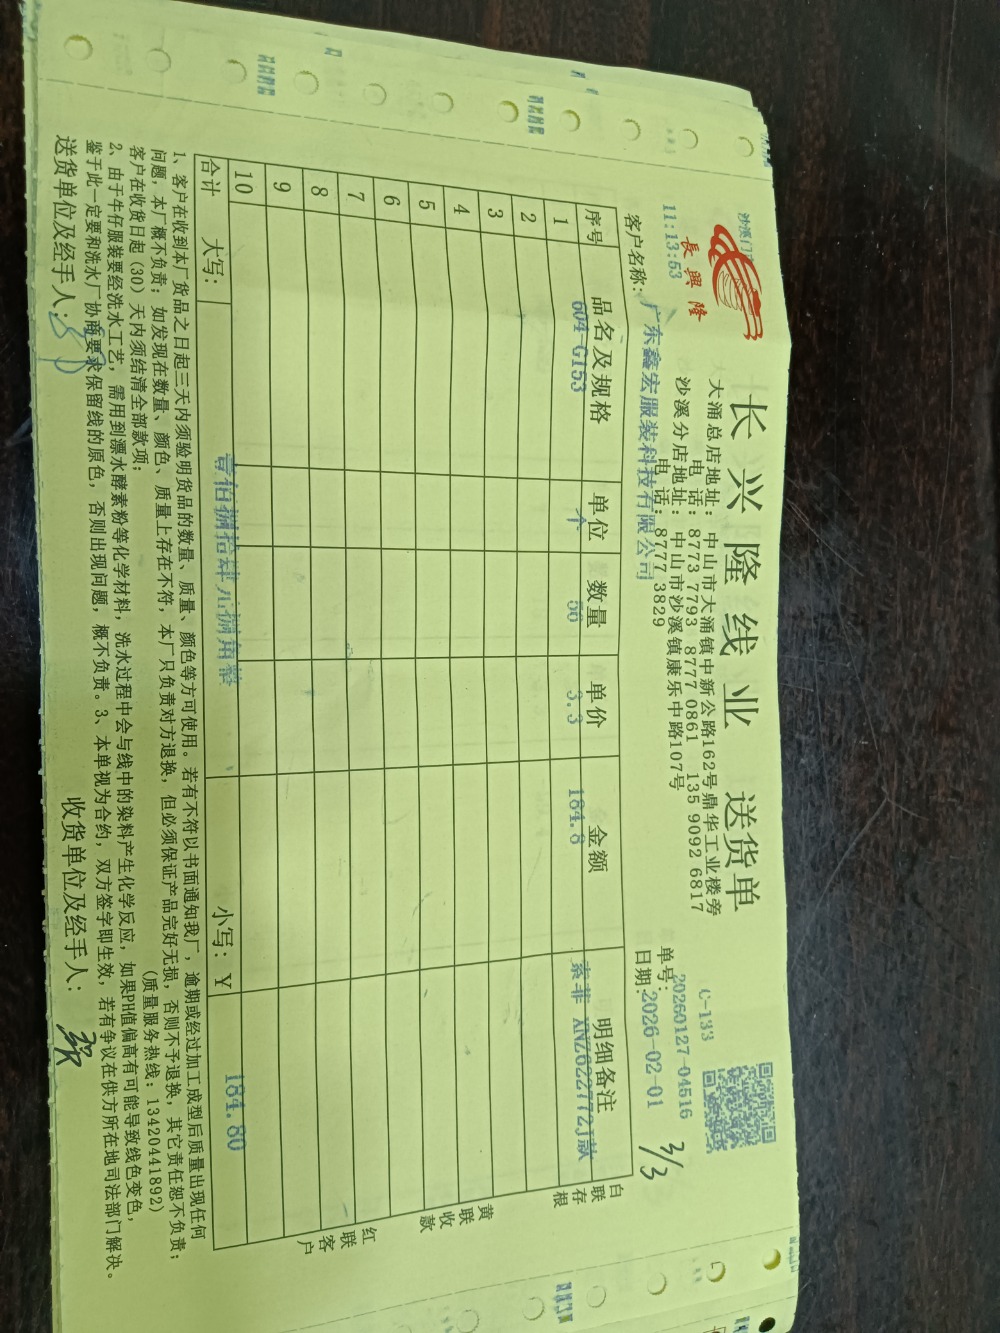 沙溪门
11:13:53
長興隆
长兴隆线业 送货单
大涌总店地址：中山市大涌镇中新公路162号鼎华工业楼旁
电 话：8773 7793 8777 0861 135 9092 6817
沙溪分店地址：中山市沙溪镇康乐中路107号
电 话：8777 3829
C-133
单号：20260127-04516
日期：2026-02-01
3/3
客户名称：广东鑫宏服装科技有限公司
序号 品名及规格 单位 数量 单价 金额 明细备注
1 604-G153 个 56 3.3 184.8 索菲 XNZ622772J款
2
3
4
5
6
7
8
9
10
合计 大写：壹佰捌拾肆元捌角整 小写：￥ 184.80
白联存根
黄联收款
红联客户
1、客户在收到本厂货品之日起三天内须验明货品的数量、质量、颜色等方可使用。若有不符以书面通知我厂，逾期或经过加工成型后质量出现任何
问题，本厂概不负责；如发现在数量、颜色、质量上存在不符，本厂只负责对方退换，但必须保证产品完好无损，否则不予退换，其它责任恕不负责；
客户在收货日起（30）天内须结清全部款项；
（质量服务热线：13420441892）
2、由于牛仔服装要经洗水工艺，需用到漂水酵素粉等化学材料，洗水过程中会与线中的染料产生化学反应，如果PH值偏高有可能导致线色变色，
鉴于此一定要和洗水厂协商要求保留线的原色，否则出现问题，概不负责。3、本单视为合约，双方签字即生效，若有争议在供方所在地司法部门解决。
送货单位及经手人：
收货单位及经手人：